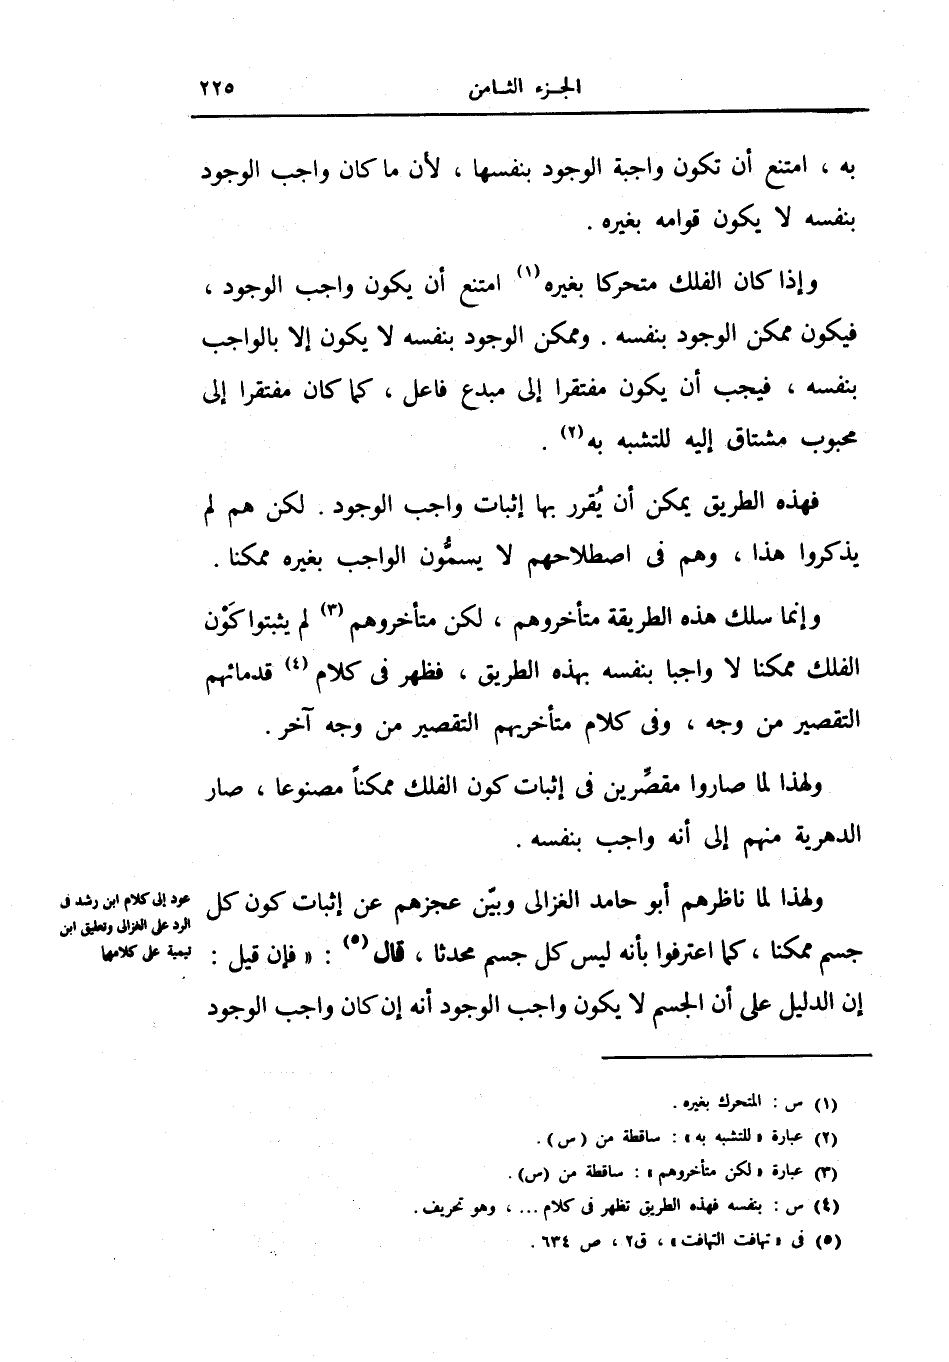 الجزء الثامن ٢٢٥
به ، امتنع أن تكون واجبة الوجود بنفسها ، لأن ما كان واجب الوجود
بنفسه لا يكون قوامه بغيره .
وإذا كان الفلك متحركا بغيره(١) امتنع أن يكون واجب الوجود ،
فيكون ممكن الوجود بنفسه . وممكن الوجود بنفسه لا يكون إلا بالواجب
بنفسه ، فيجب أن يكون مفتقرا إلى مبدع فاعل ، كما كان مفتقرا إلى
محبوب مشتاق إليه للتشبه به(٢) .
فهذه الطريق يمكن أن يُقرر بها إثبات واجب الوجود . لكن هم لم
يذكروا هذا ، وهم فى اصطلاحهم لا يسمُّون الواجب بغيره ممكنا .
وإنما سلك هذه الطريقة متأخروهم ، لكن متأخروهم(٣) لم يثبتوا كَوْن
الفلك ممكنا لا واجبا بنفسه بهذه الطريق ، فظهر فى كلام(٤) قدمائهم
التقصير من وجه ، وفى كلام متأخريهم التقصير من وجه آخر .
ولهذا لما صاروا مقصِّرين فى إثبات كون الفلك ممكناً مصنوعا ، صار
الدهرية منهم إلى أنه واجب بنفسه .
ولهذا لما ناظرهم أبو حامد الغزالى وبيّن عجزهم عن إثبات كون كل
جسم ممكنا ، كما اعترفوا بأنه ليس كل جسم محدثا ، قال(٥) : « فإن قيل :
إن الدليل على أن الجسم لا يكون واجب الوجود أنه إن كان واجب الوجود
عود إلى كلام ابن رشد فى
الرد على الغزالى وتعليق ابن
تيمية على كلامها
(١) س : المتحرك بغيره .
(٢) عبارة « للتشبه به » : ساقطة من (س) .
(٣) عبارة « لكن متأخروهم » : ساقطة من (س) .
(٤) س : بنفسه فهذه الطريق تظهر فى كلام ... ، وهو تحريف .
(٥) فى « تهافت التهافت » ، ق٢ ، ص ٦٣٤ .